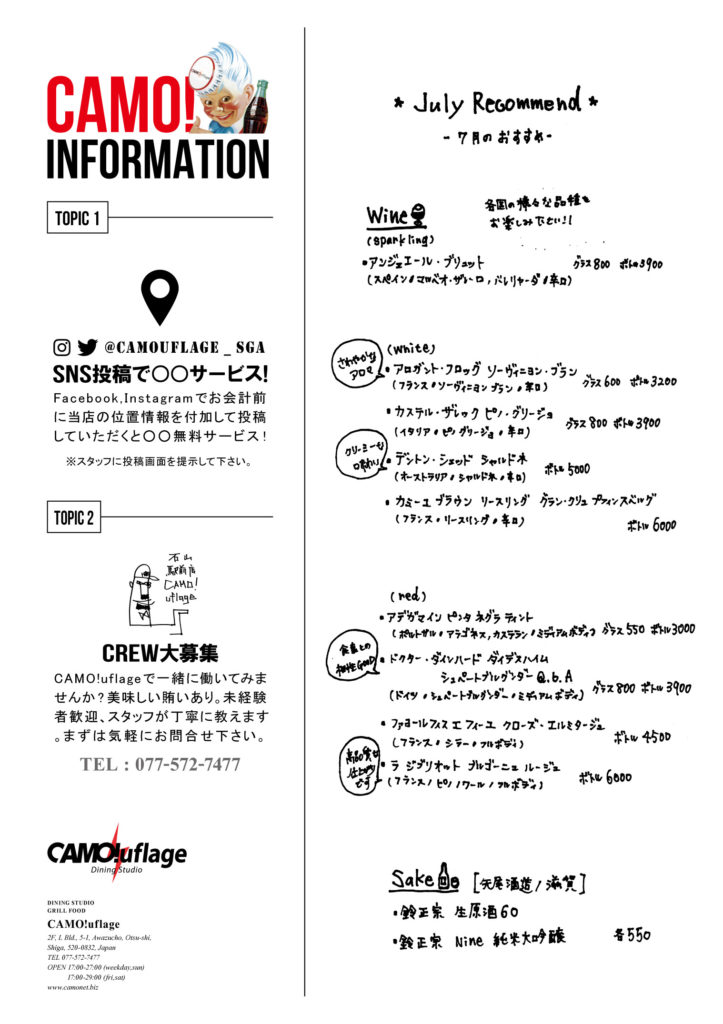 CAMO!
INFORMATION
TOPIC 1
@CAMOUFLAGE_SGA
SNS投稿で〇〇サービス!
Facebook,Instagramでお会計前
に当店の位置情報を付加して投稿
していただくと〇〇無料サービス!
※スタッフに投稿画面を提示して下さい。
TOPIC 2
石山
駅前店
CAMO!
uflage
CREW大募集
CAMO!uflageで一緒に働いてみま
せんか?美味しい賄いあり。未経験
者歓迎、スタッフが丁寧に教えます
。まずは気軽にお問合せ下さい。
TEL : 077-572-7477
CAMO!uflage
Dining Studio
DINING STUDIO
GRILL FOOD
CAMO!uflage
2F, I. Bld., 5-1, Awazucho, Otsu-shi,
Shiga, 520-0832, Japan
TEL 077-572-7477
OPEN 17:00-27:00 (weekday,sun)
17:00-29:00 (fri,sat)
www.camonet.biz
* July Recommend *
- 7月のおすすめ -
Wine
各国の様々な品種を
お楽しみ下さい!!
(sparkling)
・アンジェエール・ブリュット グラス800 ボトル3900
(スペイン/マカベオ・ザレーロ,パレリャーダ/辛口)
(white)
さわやかな
アロマ
・アロガント・フロッグ ソーヴィニヨン・ブラン グラス600 ボトル3200
(フランス/ソーヴィニヨン ブラン/辛口)
・カステル・ザレック ピノ・グリージョ グラス800 ボトル3900
(イタリア/ピノ グリージョ/辛口)
クリーミーな
口味わい
・デントン・シェッド シャルドネ ボトル5000
(オーストラリア/シャルドネ/辛口)
・カミーユ ブラウン リースリング グラン・クリュ プファインスベルグ
(フランス/リースリング/辛口) ボトル6000
(red)
・アデガマイン ピンタ ネグラ ティント
(ポルトガル/アラゴネス,カステラン/ミディアムボディ) グラス550 ボトル3000
食事との
相性GOOD
・ドクター・ダインハード ダイデスハイム
シュペートブルグンダー Q.b.A
(ドイツ/シュペートブルグンダー/ミディアムボディ) グラス800 ボトル3900
・ファヨールフィス エ フィーユ クローズ・エルミタージュ
(フランス/シラー/フルボディ) ボトル4500
高品質な
仕上がり
です
・ラ ジブリオット ブルゴーニュ ルージュ
(フランス/ピノノワール/フルボディ) ボトル6000
Sake [矢尾酒造/滋賀]
・鈴正宗 生原酒60
・鈴正宗 Nine 純米大吟醸 各550